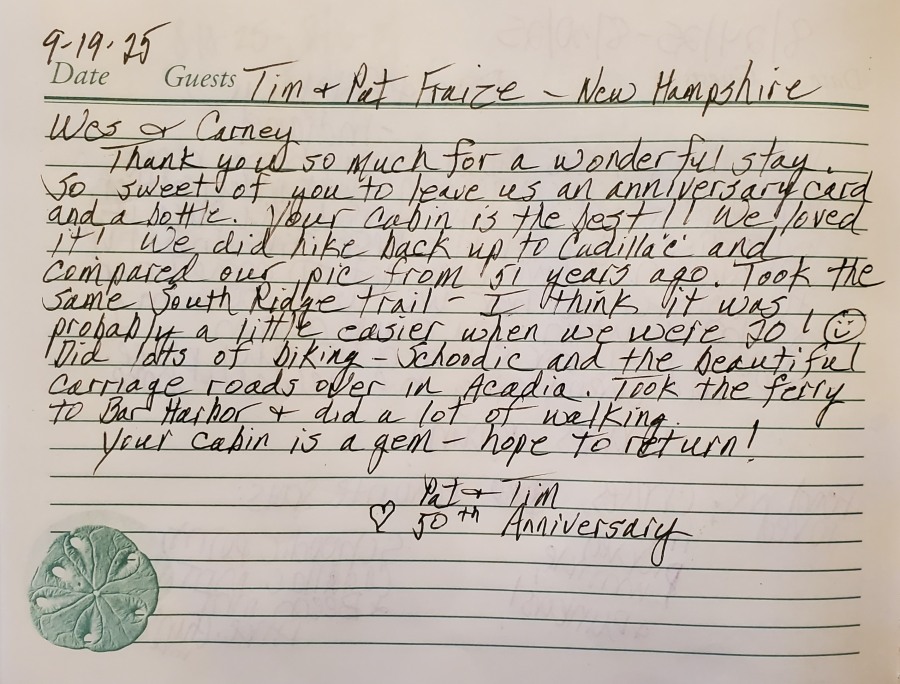 9-19-25
Date Guests Tim & Pat Fraize - New Hampshire
Wes & Carney
Thank you so much for a wonderful stay.
So sweet of you to leave us an anniversary card
and a bottle. Your cabin is the best!! We loved
it! We did hike back up to Cadillac and
compared our pic from 51 years ago. Took the
same South Ridge trail - I think it was
probably a little easier when we were 20! ☺
Did lots of biking - Schoodic and the beautiful
carriage roads over in Acadia. Took the ferry
to Bar Harbor & did a lot of walking.
Your cabin is a gem - hope to return!
Pat & Tim
♡ 50th Anniversary